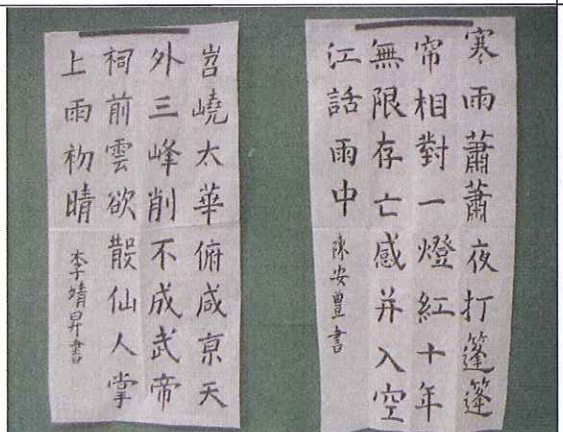 寒雨蕭蕭夜打篷篷
帘相對一燈紅十年
無限存亡感并入空
江話雨中 陳安豊書
岧嶢太華俯咸亰天
外三峰削不成武帝
祠前雲欲散仙人掌
上雨初晴 李靖昇書